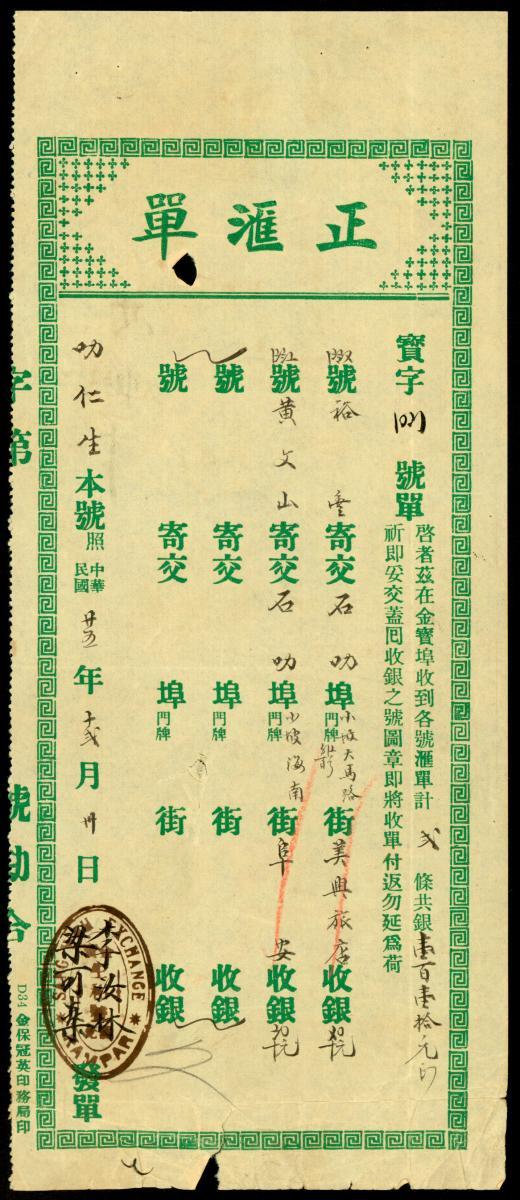 正滙單
寳字 號單
啓者茲在金寶埠收到各號滙單計 弍 條共銀壹百壹拾元正
祈即妥交蓋囘收銀之號圖章即將收單付返勿延爲荷
號裕 寄交石叻埠門牌小坡大馬路街美興旅店收銀
號黃文山寄交石叻埠門牌小坡海南街阜安收銀
號 寄交 埠門牌 街 收銀
號 寄交 埠門牌 街 收銀
叻仁生本號照中華民國廿五年十弍月卅日 發單
EXCHANGE
KAMPAR
李汝林
梁可燊
字第 號勘合
D34 金保冠英印務局印